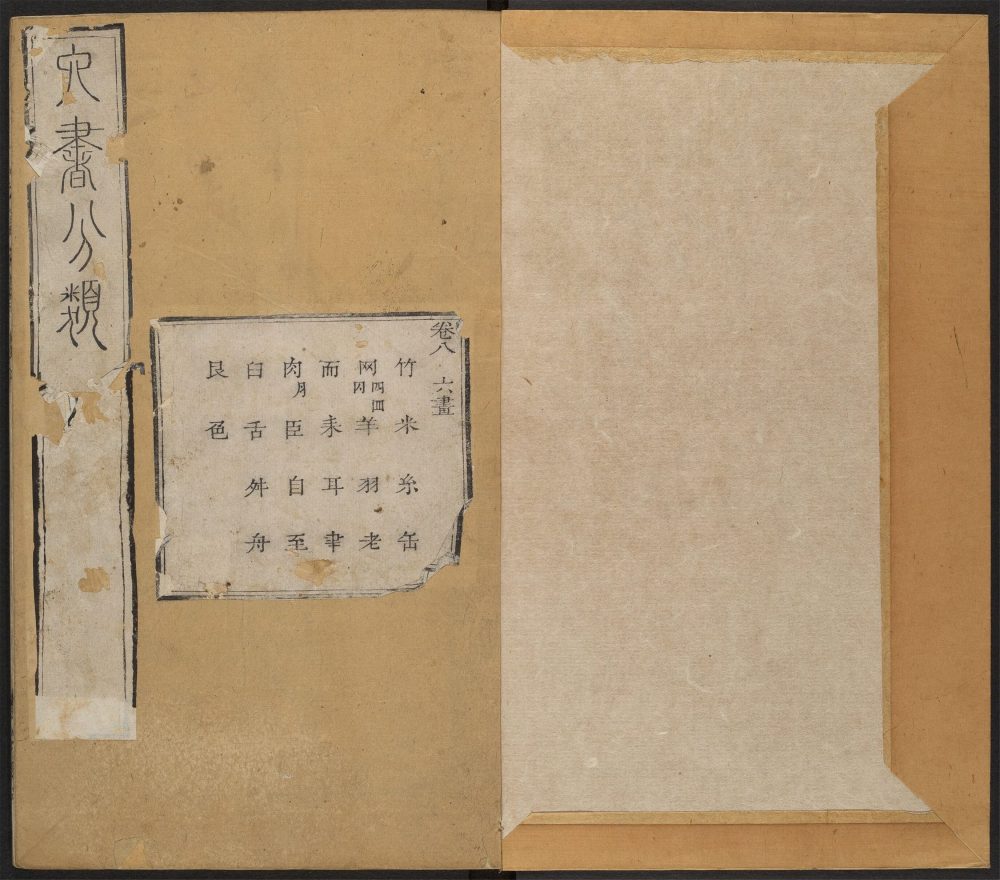 六書分類
卷八 六畫
竹 米 糸 缶
网 四 罒 羊 羽 老
而 耒 耳 聿
肉 月 臣 自 至
臼 舌 舛 舟
艮 色